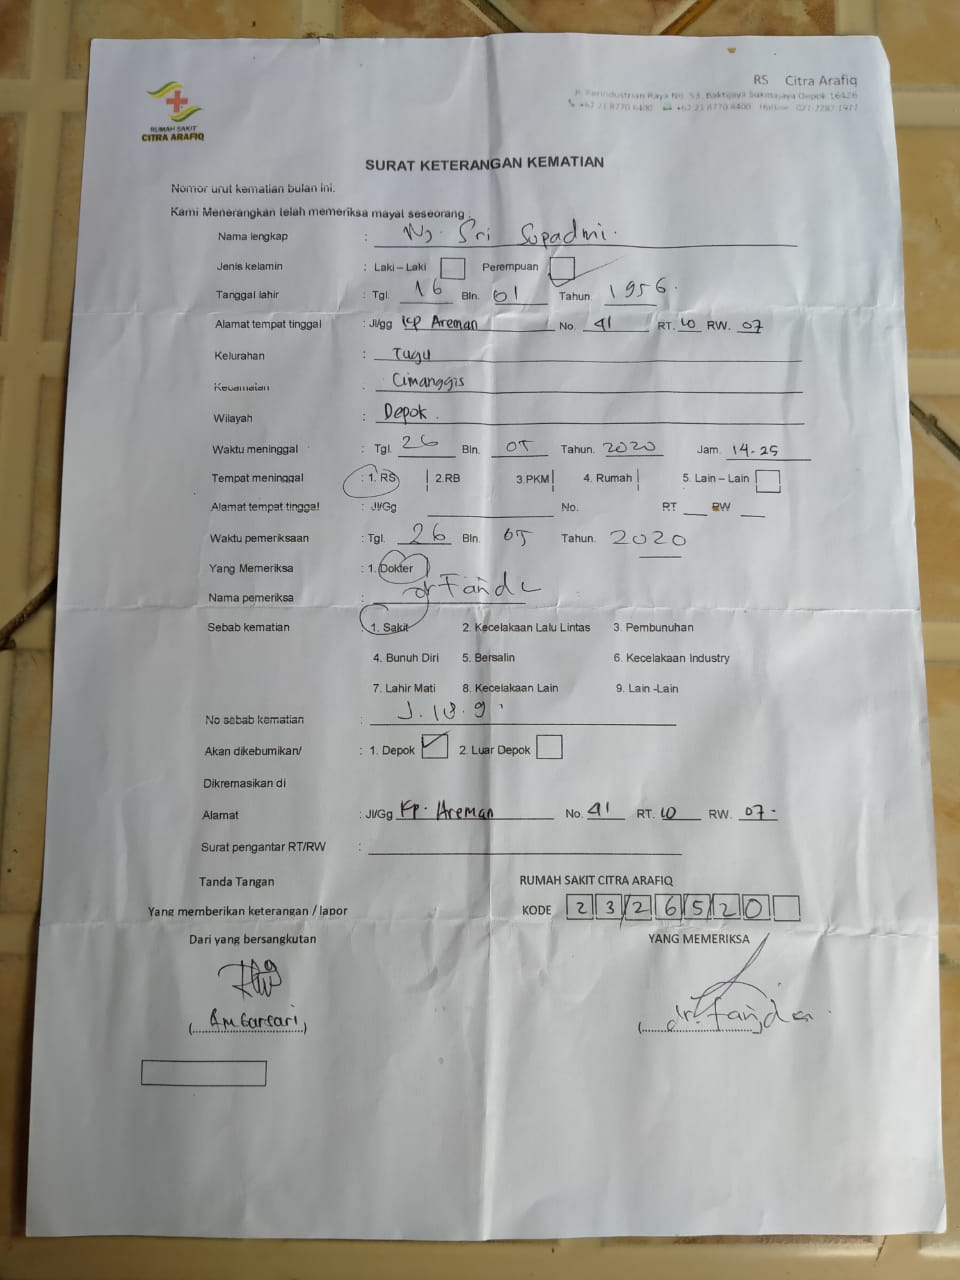 RUMAH SAKIT
CITRA ARAFIQ
RS Citra Arafiq
Jl. Perindustrian Raya No. 53, Baktijaya Sukmajaya Depok 16426
+62 21 8770 6400 +62 21 8770 6400 Hotline
SURAT KETERANGAN KEMATIAN
Nomor urut kematian bulan ini.
Kami Menerangkan telah memeriksa mayat seseorang :
Nama lengkap : Ny. Sri Supadmi.
Jenis kelamin : Laki – Laki Perempuan
Tanggal lahir : Tgl. 16 Bln. 01 Tahun. 1956.
Alamat tempat tinggal : Jl/gg Kp Areman No. 41 RT. 10 RW. 07
Kelurahan : Tugu
Kecamatan . Cimanggis
Wilayah : Depok.
Waktu meninggal : Tgl. 26 Bln. 05 Tahun. 2020 Jam. 14-25
Tempat meninggal : 1. RS 2.RB 3.PKM 4. Rumah 5. Lain – Lain
Alamat tempat tinggal : Jl/Gg No. RT RW
Waktu pemeriksaan : Tgl. 26 Bln. 05 Tahun. 2020
Yang Memeriksa : 1. Dokter
Nama pemeriksa : dr
Sebab kematian : 1. Sakit 2. Kecelakaan Lalu Lintas 3. Pembunuhan
4. Bunuh Diri 5. Bersalin 6. Kecelakaan Industry
7. Lahir Mati 8. Kecelakaan Lain 9. Lain -Lain
No sebab kematian : J. 18. 9.
Akan dikebumikan/ : 1. Depok 2. Luar Depok
Dikremasikan di
Alamat : Jl/Gg Kp. Areman No. 41 RT. 10 RW. 07-
Surat pengantar RT/RW :
Tanda Tangan RUMAH SAKIT CITRA ARAFIQ
Yang memberikan keterangan / lapor KODE 2 3 2 6 5 2 0
Dari yang bersangkutan YANG MEMERIKSA
(Ambarsari) (dr.